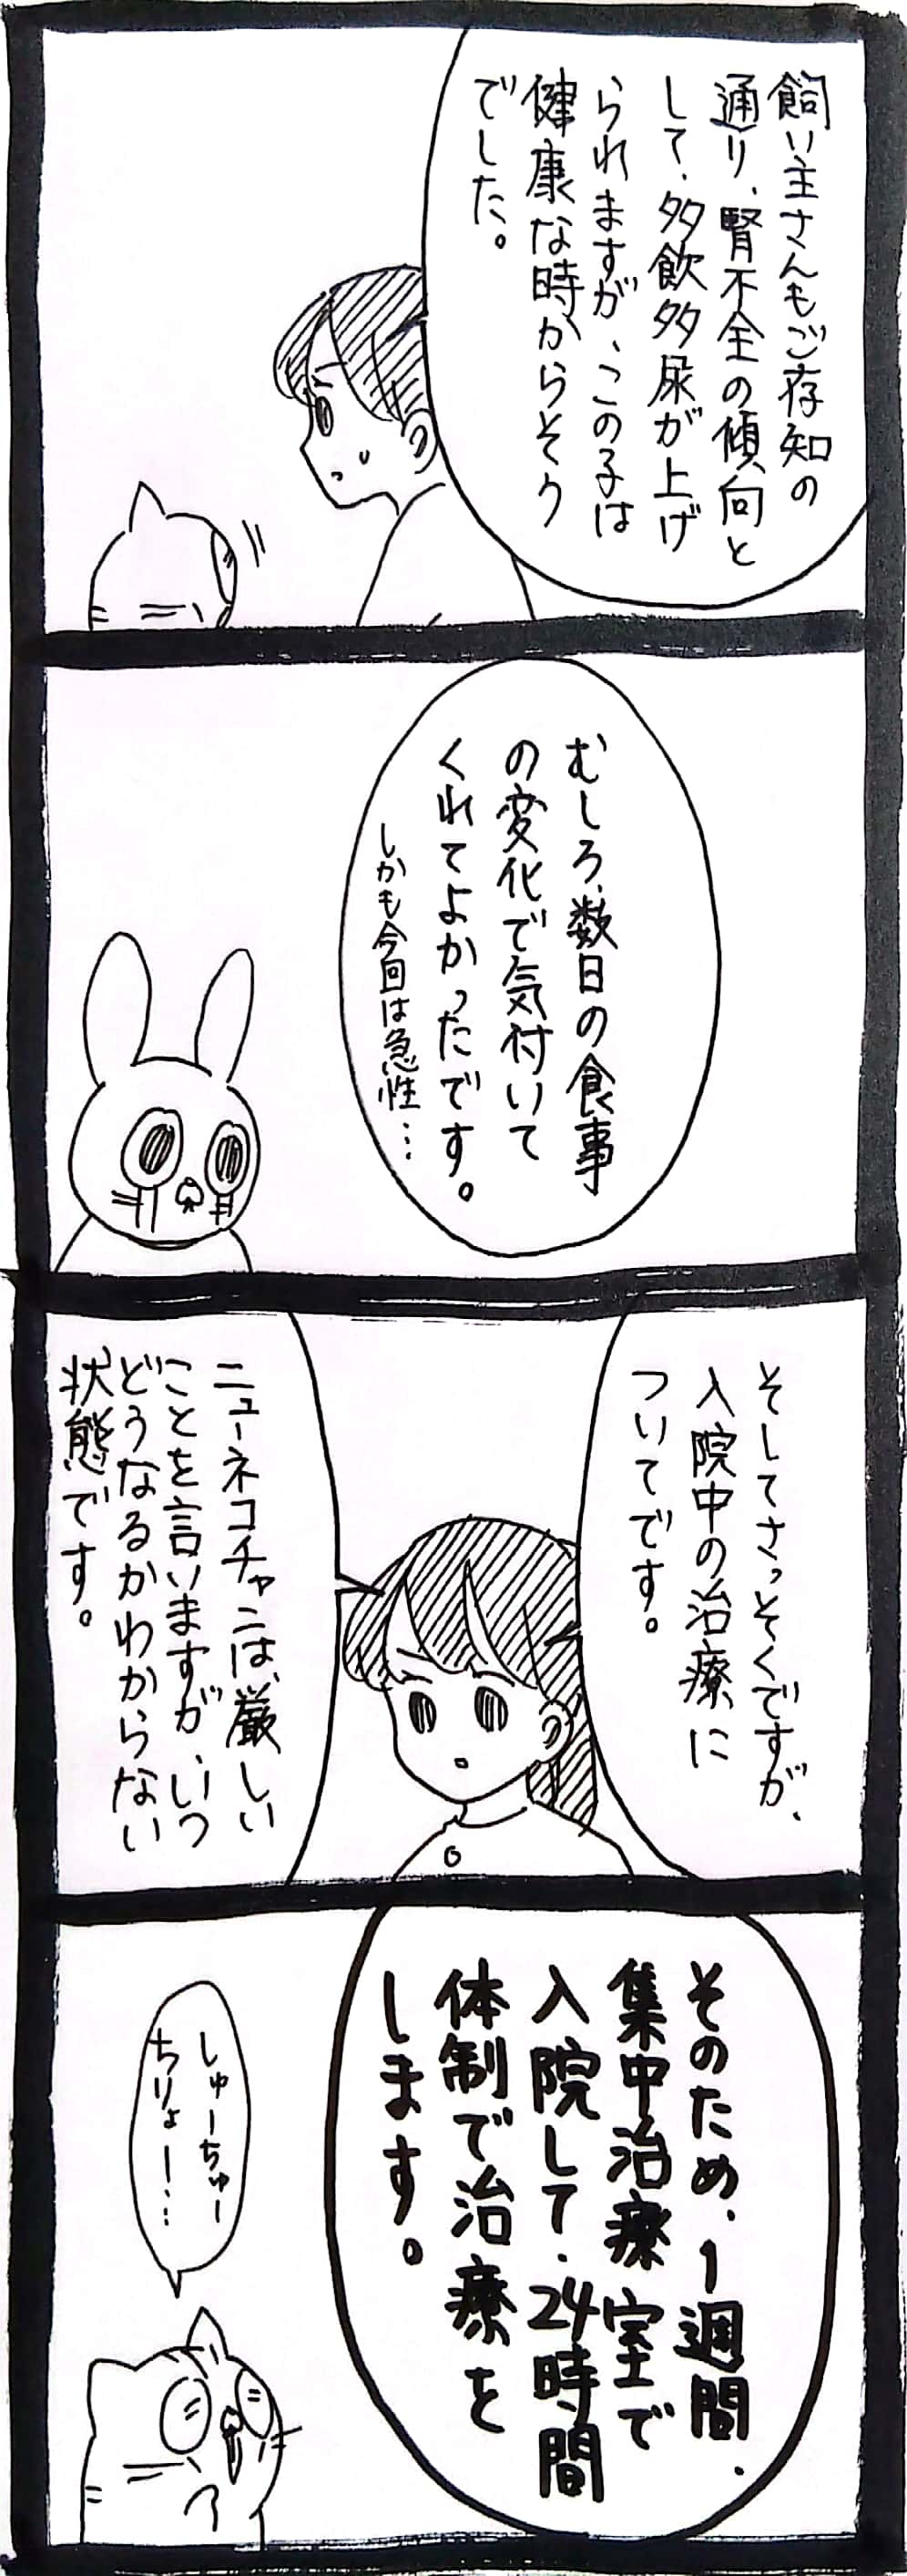 飼い主さんもご存知の
通り、腎不全の傾向と
して、多飲多尿が上げ
られますが、この子は
健康な時からそう
でした。
むしろ、数日の食事
の変化で気付いて
くれてよかったです。
しかも今回は急性…
そしてさっそくですが、
入院中の治療に
ついてです。
ニューネコチャンは、厳しい
ことを言いますが、いつ
どうなるかわからない
状態です。
そのため、1週間、
集中治療室で
入院して、24時間
体制で治療を
します。
しゅーちゅー
ちりょー…